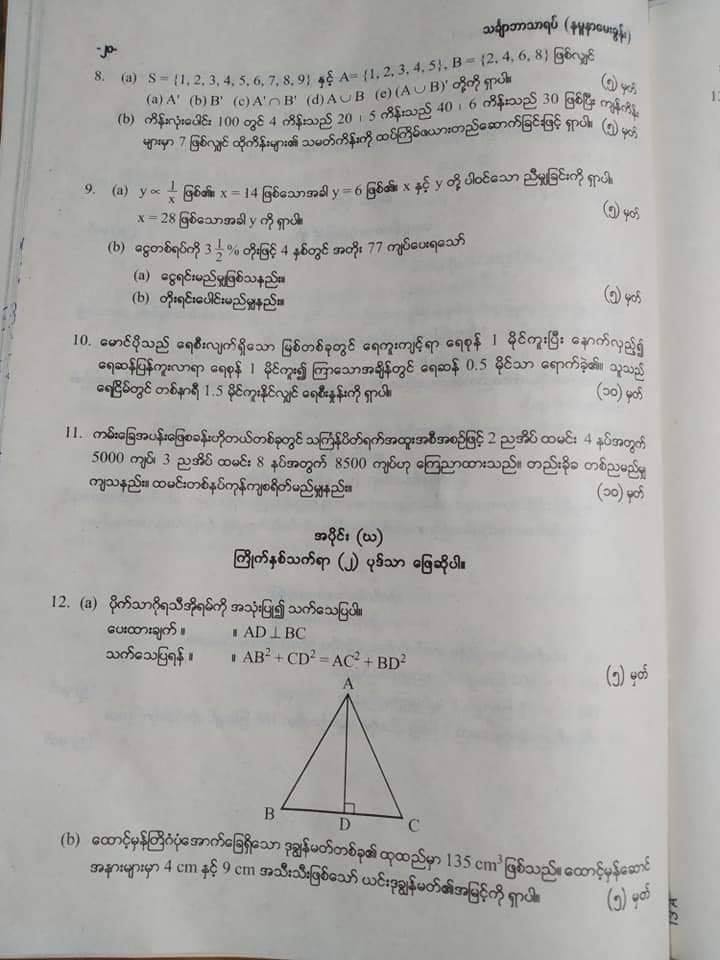 -၂၀-
သင်္ချာဘာသာရပ် (နမူနာမေးခွန်း)
8. (a) S = {1, 2, 3, 4, 5, 6, 7, 8, 9} နှင့် A= {1, 2, 3, 4, 5}, B = {2, 4, 6, 8} ဖြစ်လျှင်
(a) A' (b) B' (c) A' ∩ B' (d) A ∪ B (e) (A ∪ B)' တို့ကို ရှာပါ။ (၅) မှတ်
(b) ကိန်းလုံးပေါင်း 100 တွင် 4 ကိန်းသည် 20 ၊ 5 ကိန်းသည် 40 ၊ 6 ကိန်းသည် 30 ဖြစ်ပြီး ကျန်ကိန်း
များမှာ 7 ဖြစ်လျှင် ထိုကိန်းများ၏ သမတ်ကိန်းကို ထပ်ကြိမ်ဇယားတည်ဆောက်ခြင်းဖြင့် ရှာပါ။ (၅) မှတ်
9. (a) y ∝ 1/x ဖြစ်၏။ x = 14 ဖြစ်သောအခါ y = 6 ဖြစ်၏။ x နှင့် y တို့ ပါဝင်သော ညီမျှခြင်းကို ရှာပါ။
x = 28 ဖြစ်သောအခါ y ကို ရှာပါ။ (၅) မှတ်
(b) ငွေတစ်ရပ်ကို 3 1/2 % တိုးဖြင့် 4 နှစ်တွင် အတိုး 77 ကျပ်ပေးရသော်
(a) ငွေရင်းမည်မျှဖြစ်သနည်း။
(b) တိုးရင်းပေါင်းမည်မျှနည်း။ (၅) မှတ်
10. မောင်ဗိုသည် ရေစီးလျက်ရှိသော မြစ်တစ်ခုတွင် ရေကူးကျင့်ရာ ရေစုန် 1 မိုင်ကူးပြီး နောက်လှည့်၍
ရေဆန်ပြန်ကူးလာရာ ရေစုန် 1 မိုင်ကူး၍ ကြာသောအချိန်တွင် ရေဆန် 0.5 မိုင်သာ ရောက်ခဲ့၏။ သူသည်
ရေငြိမ်တွင် တစ်နာရီ 1.5 မိုင်ကူးနိုင်လျှင် ရေစီးနှုန်းကို ရှာပါ။ (၁၀) မှတ်
11. ကမ်းခြေအပန်းဖြေစခန်းဟိုတယ်တစ်ခုတွင် သင်္ကြန်ပိတ်ရက်အထူးအစီအစဉ်ဖြင့် 2 ညအိပ် ထမင်း 4 နပ်အတွက်
5000 ကျပ်၊ 3 ညအိပ် ထမင်း 8 နပ်အတွက် 8500 ကျပ်ဟု ကြေညာထားသည်။ တည်းခိုခ တစ်ညမည်မျှ
ကျသနည်း။ ထမင်းတစ်နပ်ကုန်ကျစရိတ်မည်မျှနည်း။ (၁၀) မှတ်
အပိုင်း (ဃ)
ကြိုက်နှစ်သက်ရာ (၂) ပုဒ်သာ ဖြေဆိုပါ။
12. (a) ပိုက်သာဂိုရသီအိုရမ်ကို အသုံးပြု၍ သက်သေပြပါ။
ပေးထားချက် ။ ။ AD ⊥ BC
သက်သေပြရန် ။ ။ AB² + CD² = AC² + BD² (၅) မှတ်
A
B
D
C
(b) ထောင့်မှန်တြိဂံပုံအောက်ခြေရှိသော ဒုချွန်မတ်တစ်ခု၏ ထုထည်မှာ 135 cm³ ဖြစ်သည်။ ထောင့်မှန်ဆောင်
အနားများမှာ 4 cm နှင့် 9 cm အသီးသီးဖြစ်သော် ယင်းဒုချွန်မတ်၏အမြင့်ကို ရှာပါ။ (၅) မှတ်